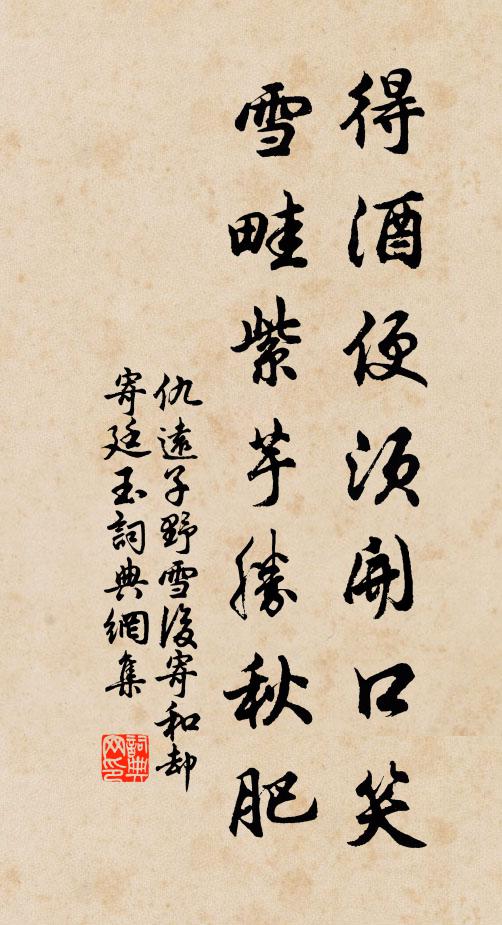 得酒便須開口笑
雪畦紫芋勝秋肥
仇遠子野雪後寄和却
寄廷玉詞典網集
詞典
网印